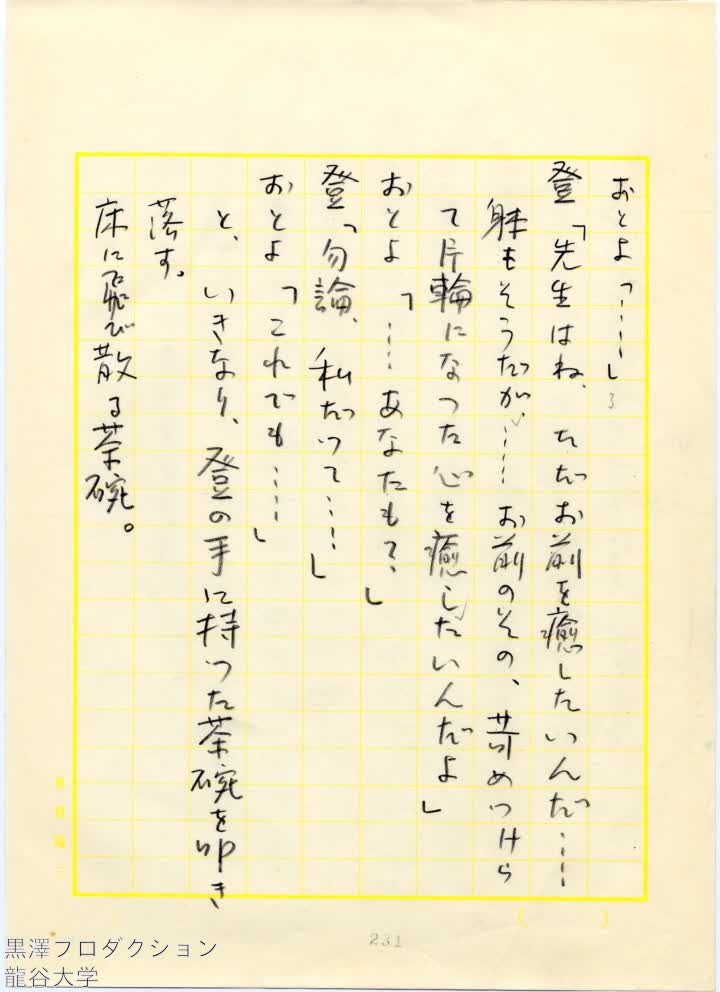 おとよ「……」
登「先生はね、ただお前を癒したいんだ……
躰もそうだが、……お前のその、苛めつけら
て片輪になった心を癒したいんだよ」
おとよ「……あなたも?」
登「勿論、私だって……」
おとよ「これでも……」
と、いきなり、登の手に持った茶碗を叩き
落す。
床に飛び散る茶碗。
231
黒澤プロダクション
龍谷大学